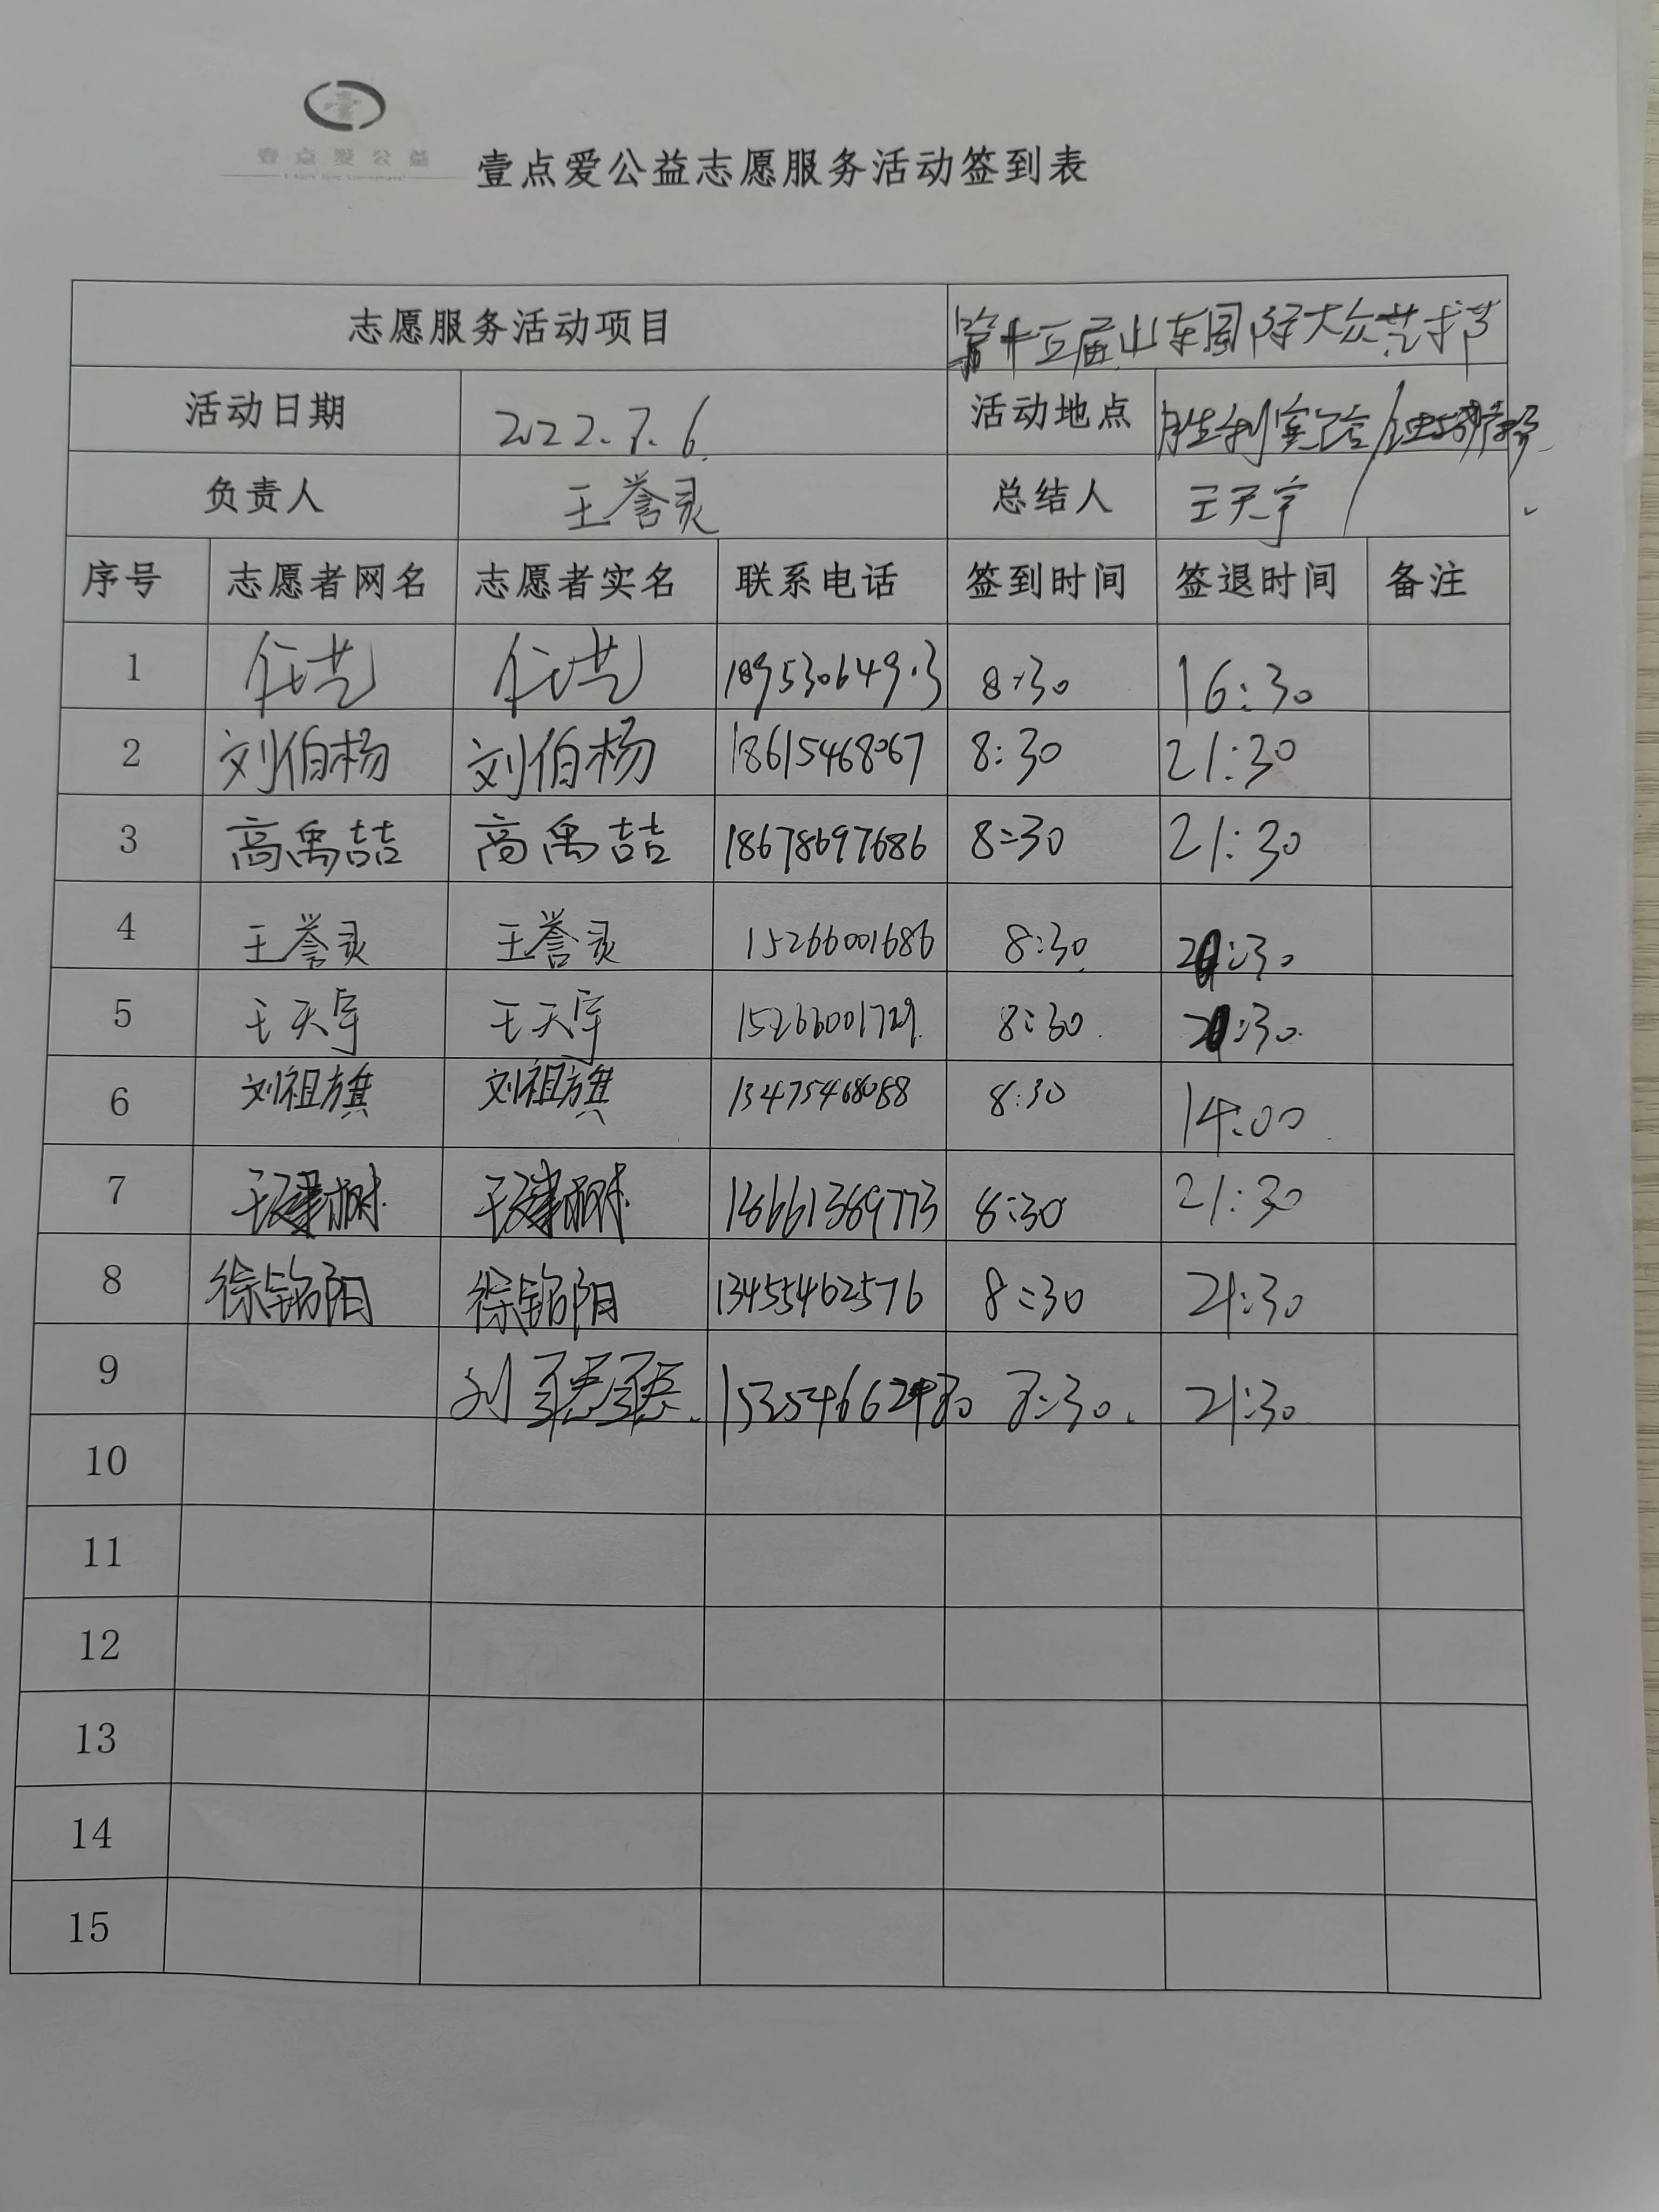 壹点爱公益
壹点爱公益志愿服务活动签到表
志愿服务活动项目 第十五届山东国际大众艺术节
活动日期 2022.7.6. 活动地点 胜利实验
负责人 王誉灵 总结人 王天宇
序号 志愿者网名 志愿者实名 联系电话 签到时间 签退时间 备注
1 任艺 任艺 8:30 16:30
2 刘伯杨 刘伯杨 18615468067 8:30 21:30
3 高禹喆 高禹喆 18678697686 8:30 21:30
4 王誉灵 王誉灵 15266001686 8:30 :30
5 王天宇 王天宇 15266001729 8:30 :30
6 刘祖旗 刘祖旗 13475468088 8:30 14:00
7 13661389773 8:30 21:30
8 徐铭阳 徐铭阳 13455462576 8:30 21:30
9 刘 8:30 21:30
10
11
12
13
14
15